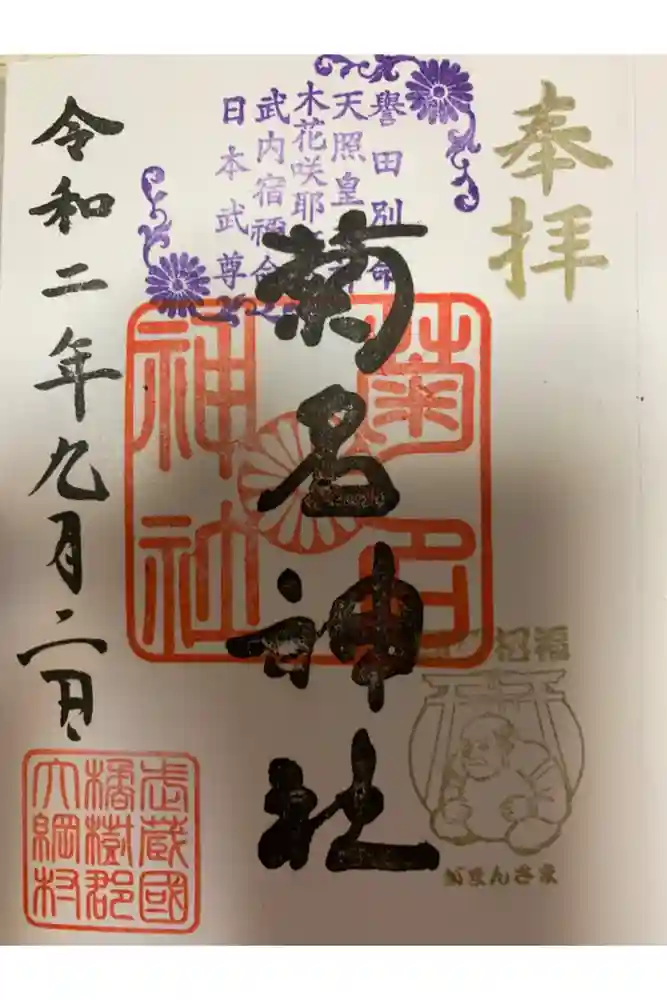 奉拝
譽田別命
天照皇
木花咲耶
武内宿禰命
日本武尊
菊名神社
菊名
神社
招福
がまんさま
武蔵國
橘樹郡
大綱村
令和二年九月二日